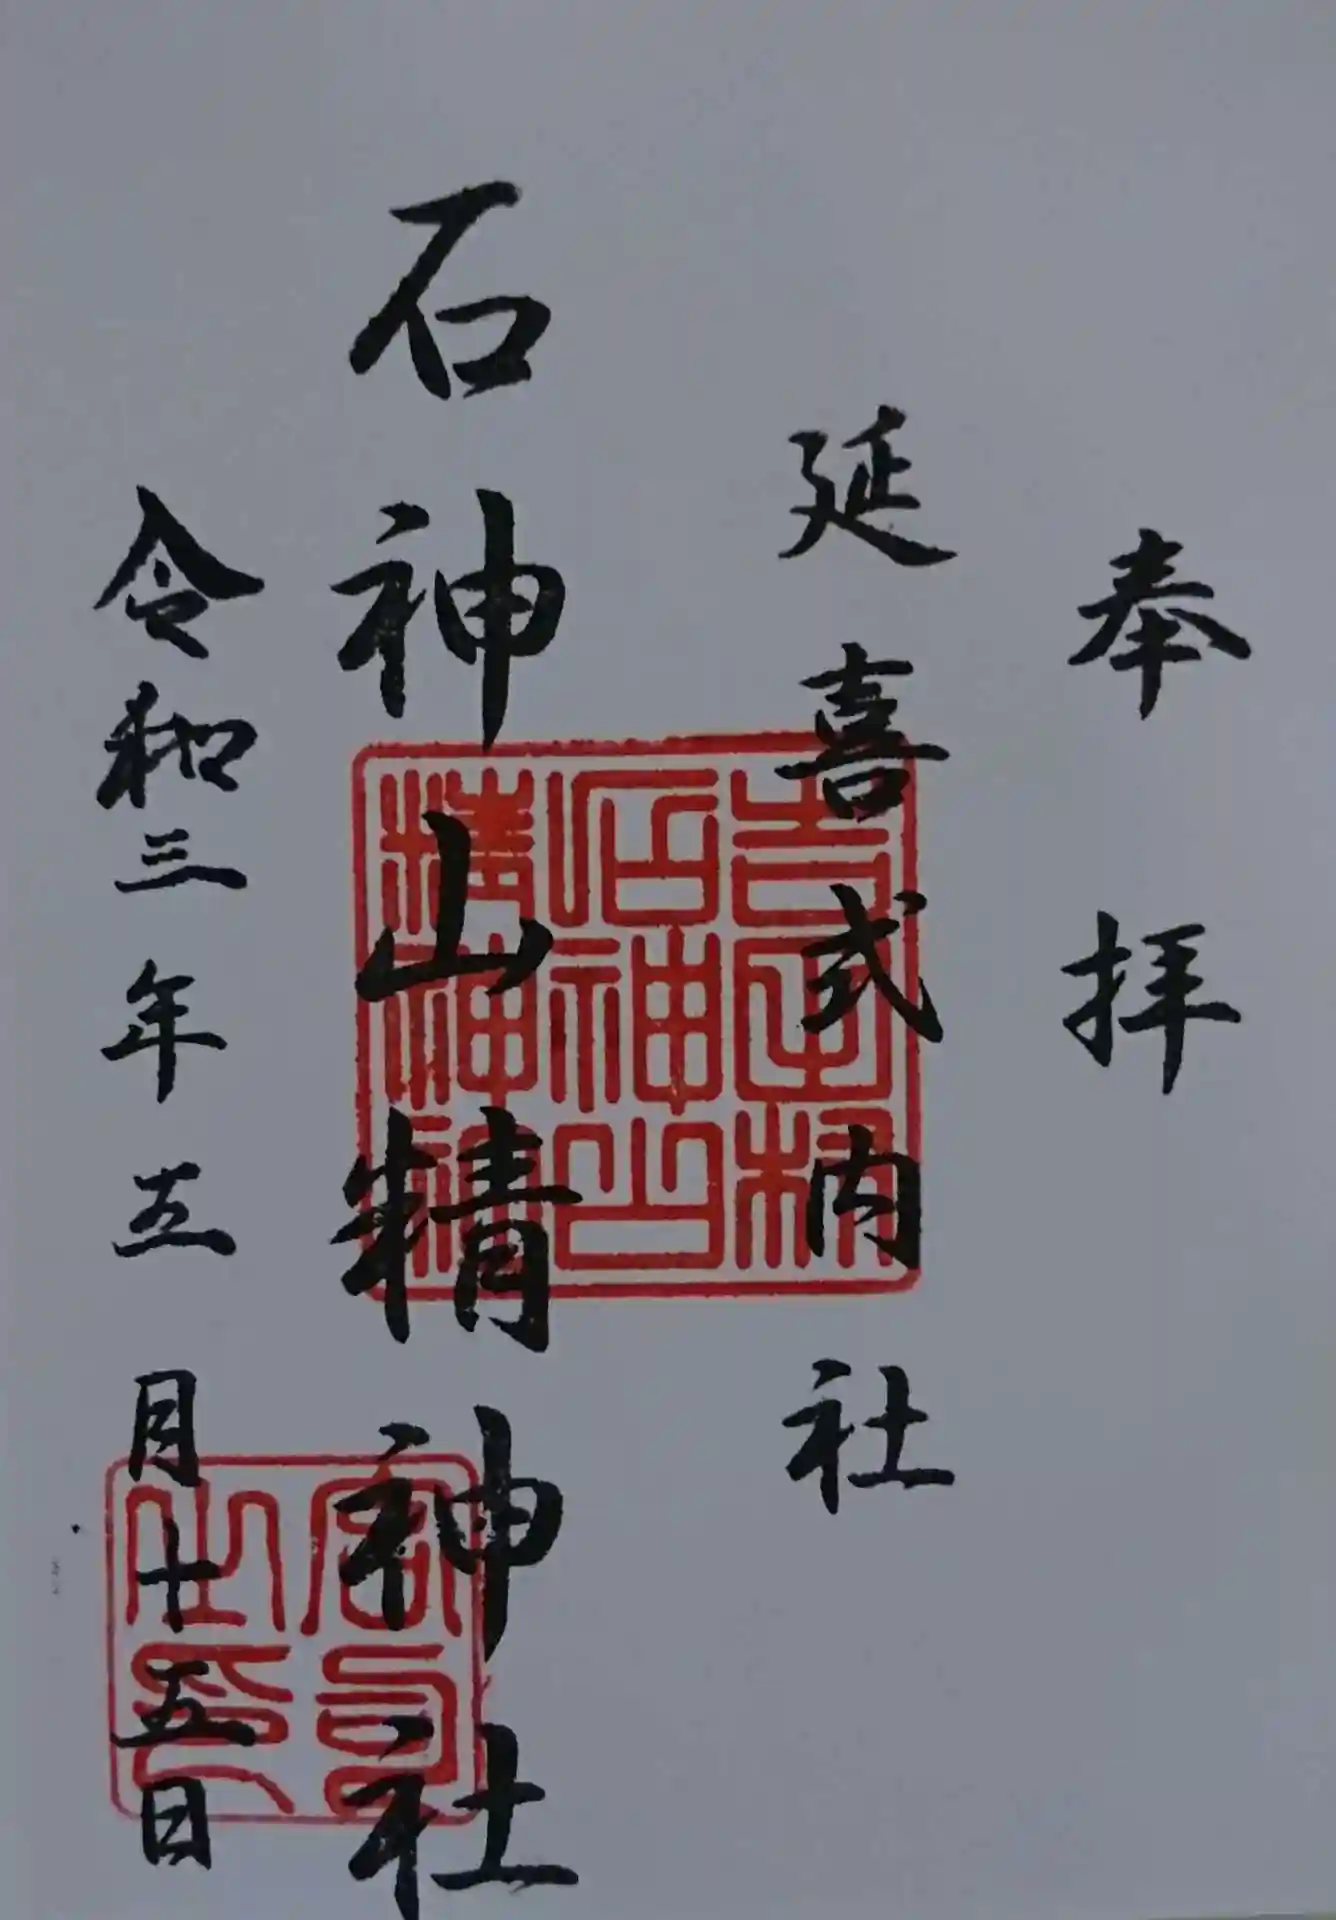 奉拝
延喜式内社
石神山精神社
令和三年五月十五日
吉岡村
石神山
精神社
宮司之印